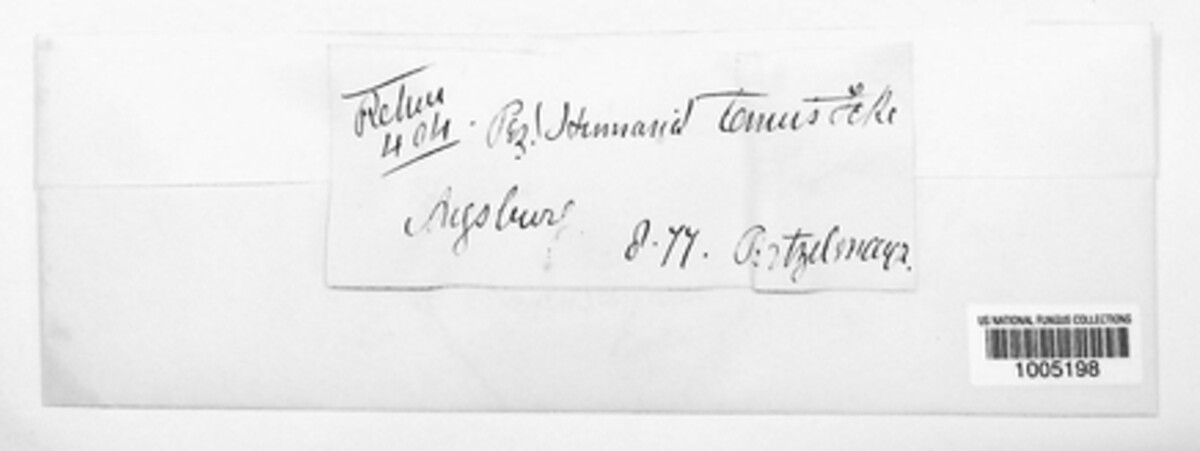 Rehm
404. Pez! Humaria tenuis Fckl
Augsburg.
8.77. Britzelmayr.
US NATIONAL FUNGUS COLLECTIONS
1005198